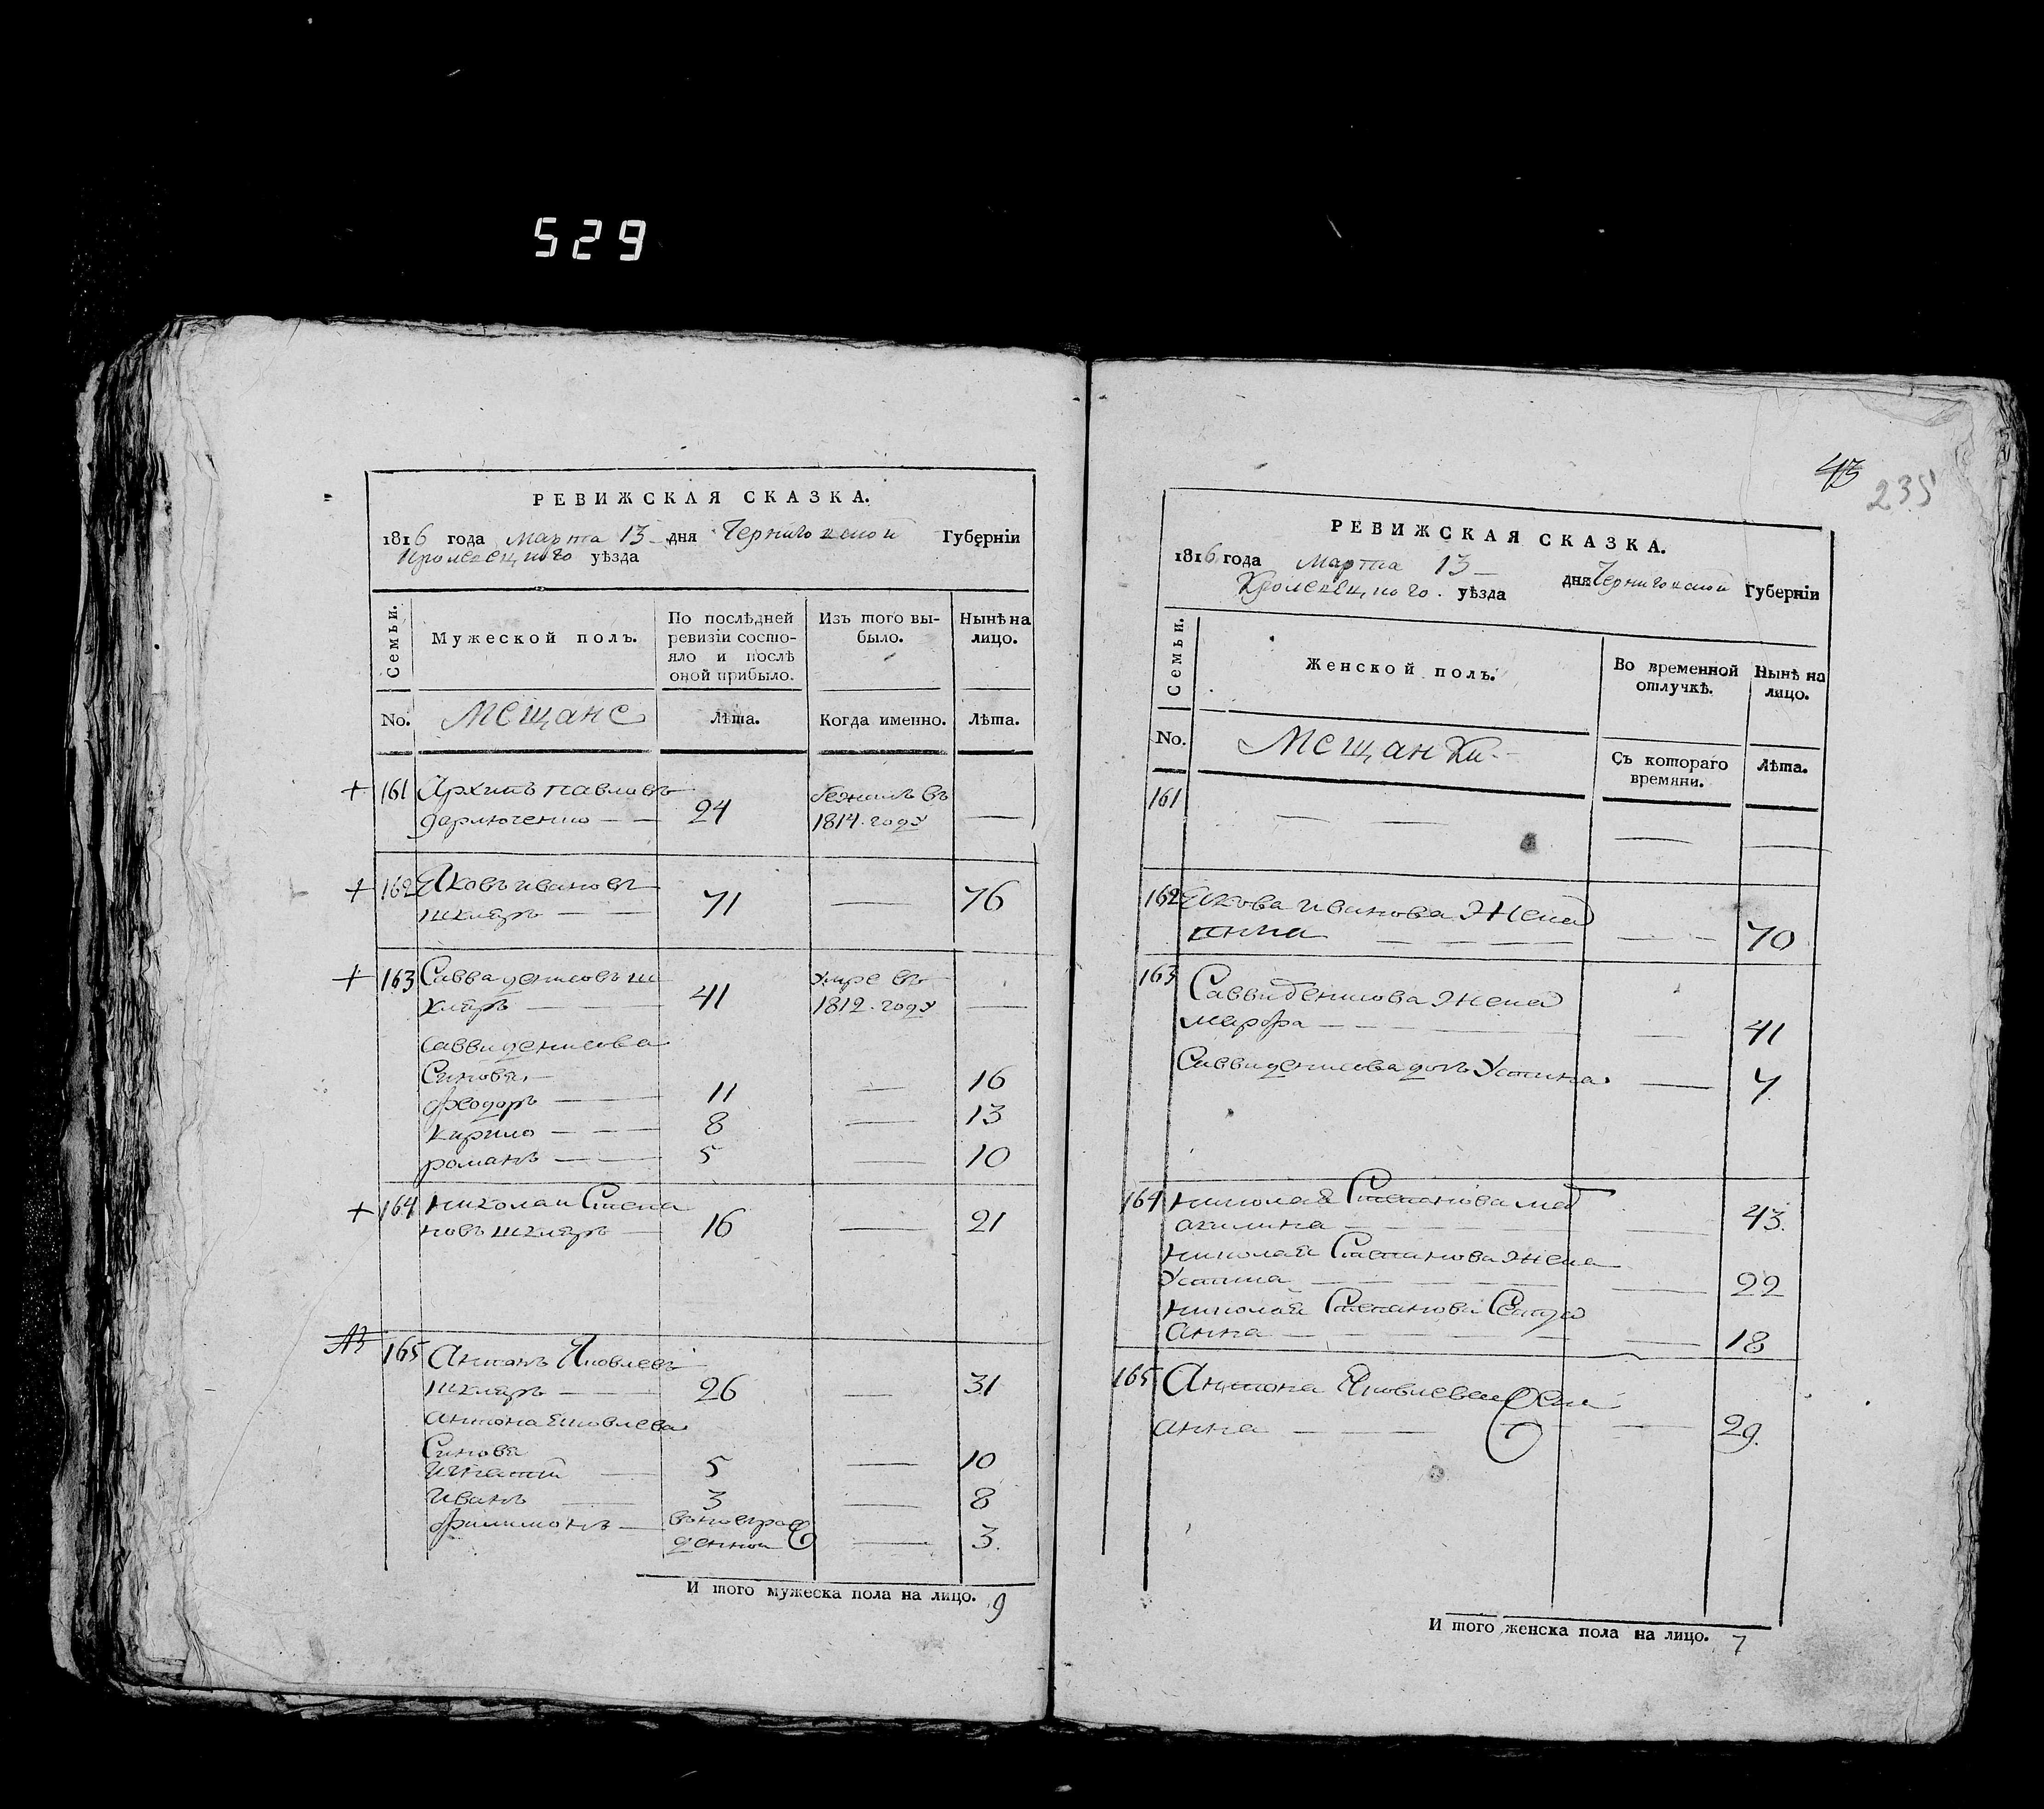 529
РЕВИЖСКАЯ СКАЗКА.
1816 года марта 13 дня Черниговской Губерніи
Кролевецкого уѣзда
Семьи.
Мужеской полъ.
По послѣдней ревизіи состояло и послѣ оной прибыло.
Изъ того выбыло.
Нынѣ на лицо.
No.
Мещане
Лѣта.
Когда именно.
Лѣта.
+ 161 Архипъ павловъ бежалъ въ
24 1814 году —
+ 162 Яковъ ивановъ
шкляръ — — 71 — 76
+ 163 Савва денисовъ ш умре въ
кляръ — — 41 1812 году —
саввы денисова
Синовя
феодоръ — — 11 — 16
кирило — — — 8 — 13
романъ — — — 5 — 10
+ 164 николай Степа
новъ шкляръ — 16 — 21
165 Антонъ Яковлевъ
шкляръ — — 26 — 31
антона Яковлева
Синовя
игнатій — 5 — 10
иванъ — 3 — 8
филимонъ — вновърож
денной — 3.
И того мужеска пола на лицо. 9
43
235
РЕВИЖСКАЯ СКАЗКА.
1816 года марта 13 дня Черниговской Губерніи
Кролевецкого уѣзда
Семьи.
Женской полъ.
Во временной отлучкѣ.
Нынѣ на лицо.
No.
Мещанки
Съ котораго времяни.
Лѣта.
161 — — — —
162 Якова иванова Жена
анна — — — — — 70
163 Саввы денисова Жена
марфа — — — — 41
Саввы денисова дочь Устина — 7
164 николая Степанова мат
акилина — — — — 43.
николая Степанова Жена
Устина — — — — 22
николая Степанова Сестра
анна — — — — 18
165 Антона Яковлева Жена
анна — — — — 29.
И того женска пола на лицо. 7